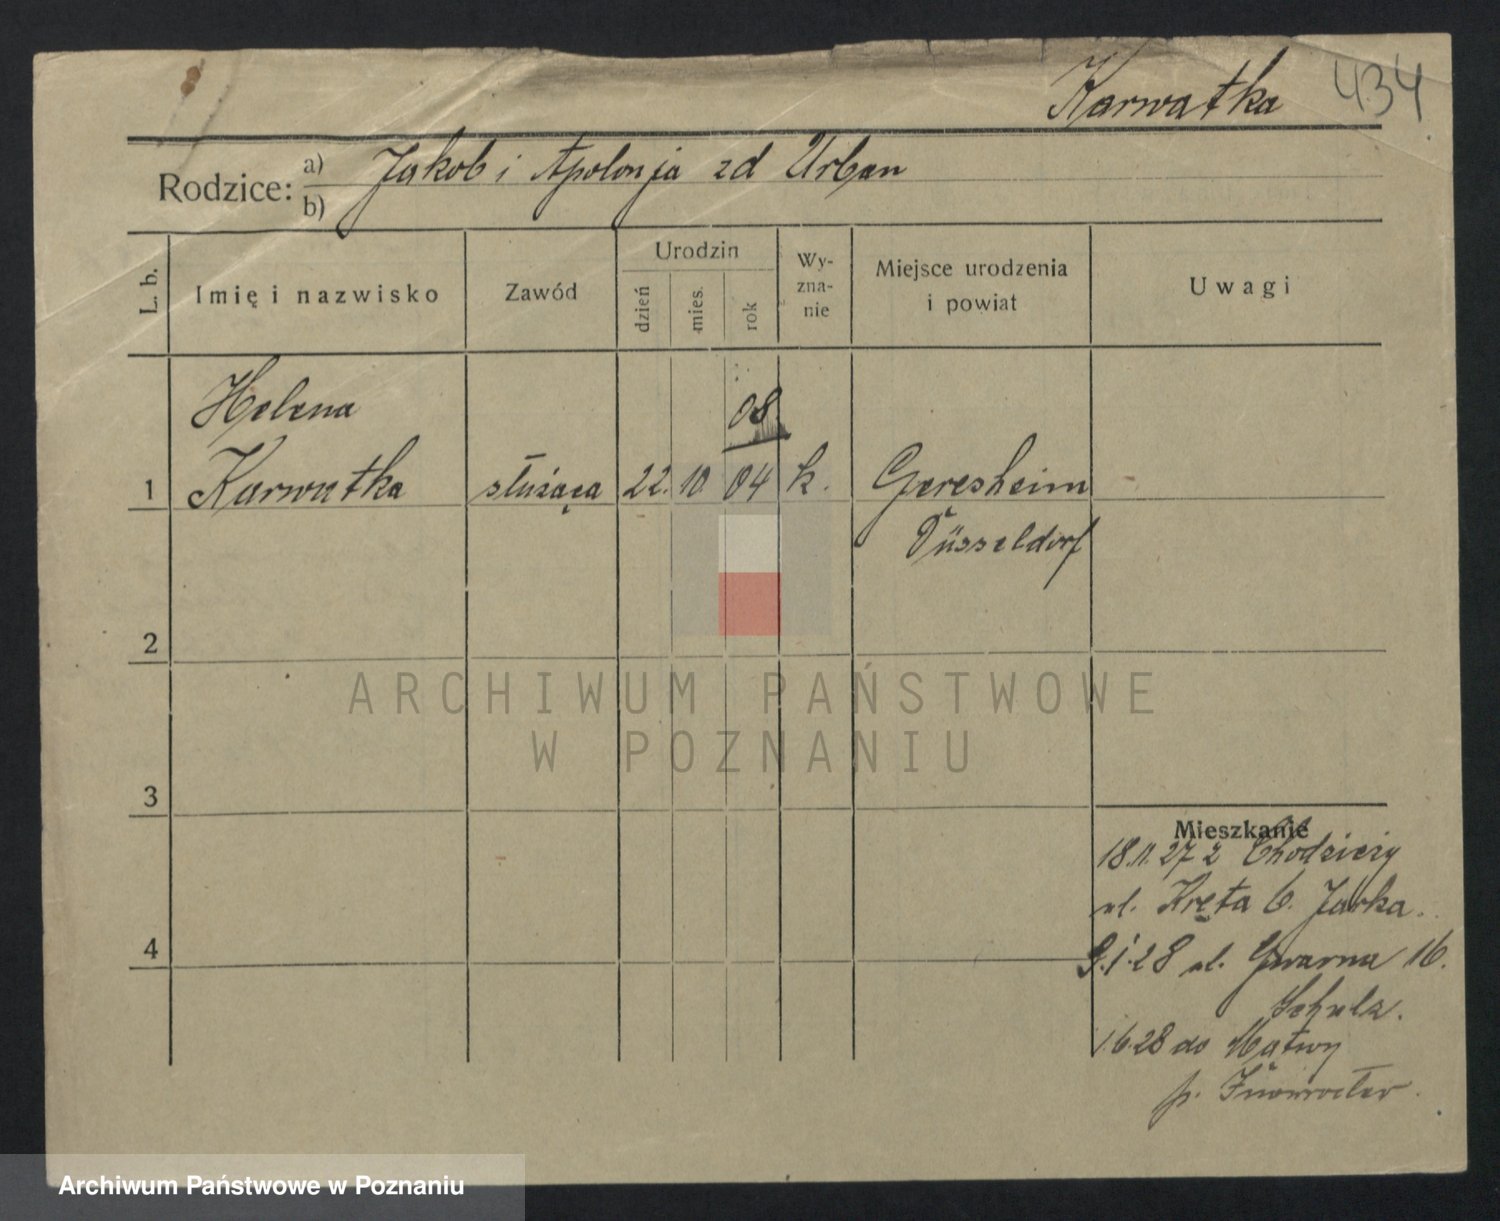 Karwatka 434
Rodzice: a) Jakob i Apolonja zd Urban
b)
L. b. Imię i nazwisko Zawód Urodzin dzień mies. rok Wy-zna-nie Miejsce urodzenia i powiat Uwagi
Helena 08
1 Karwatka służąca 22. 10 04 k. Geresheim
Düsseldorf
2
ARCHIWUM PAŃSTWOWE
W POZNANIU
3
Mieszkanie
18.11.27 z Chodzieży
ul. Kręta 6. Jarka.
9.1.28 ul. Gwarna 16.
4
Schulz.
1.6.28 do Mątwy
p. Inowrocław.
Archiwum Państwowe w Poznaniu